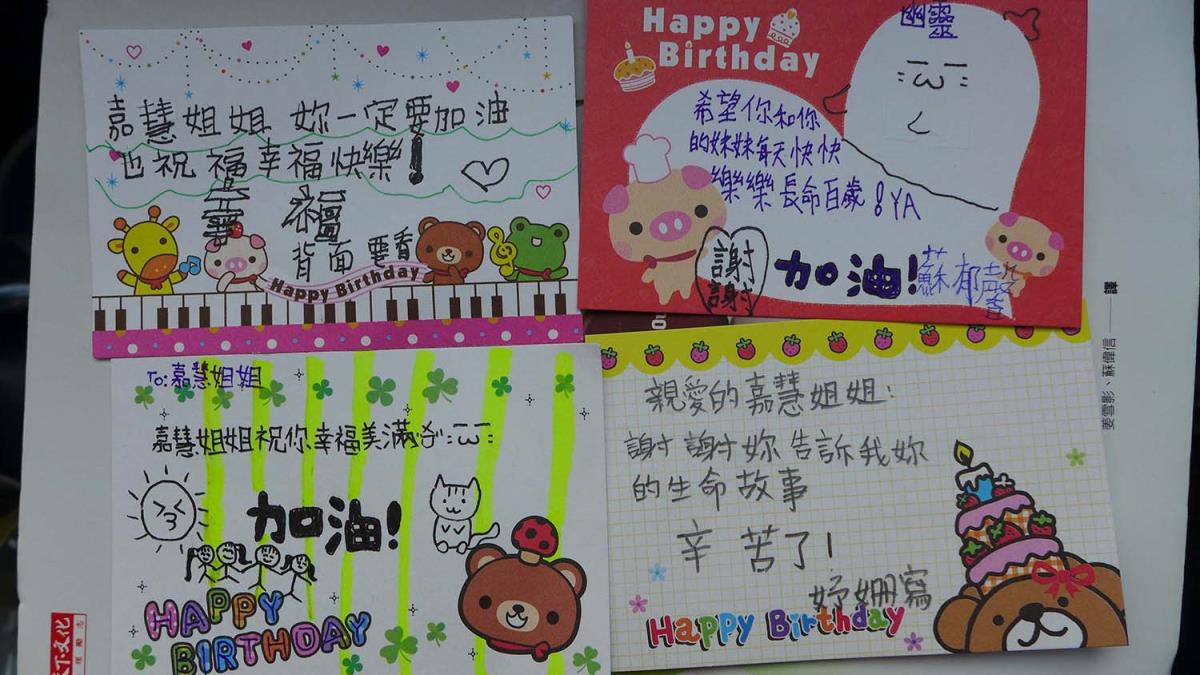 嘉慧姐姐 妳一定要加油
也祝福幸福快樂!
幸福
背面要看
Happy Birthday
Happy
Birthday
幽靈
希望你和你
的妹妹每天快快
樂樂長命百歲!YA
謝
謝
加油!
蘇郁
To:嘉慧姐姐
嘉慧姐姐祝你幸福美滿
加油!
HAPPY
BIRTHDAY
親愛的嘉慧姐姐:
謝謝妳告訴我妳
的生命故事
辛苦了!
妤姍寫
Happy Birthday
姜雪影、蘇偉信 —— 譯
天下文化